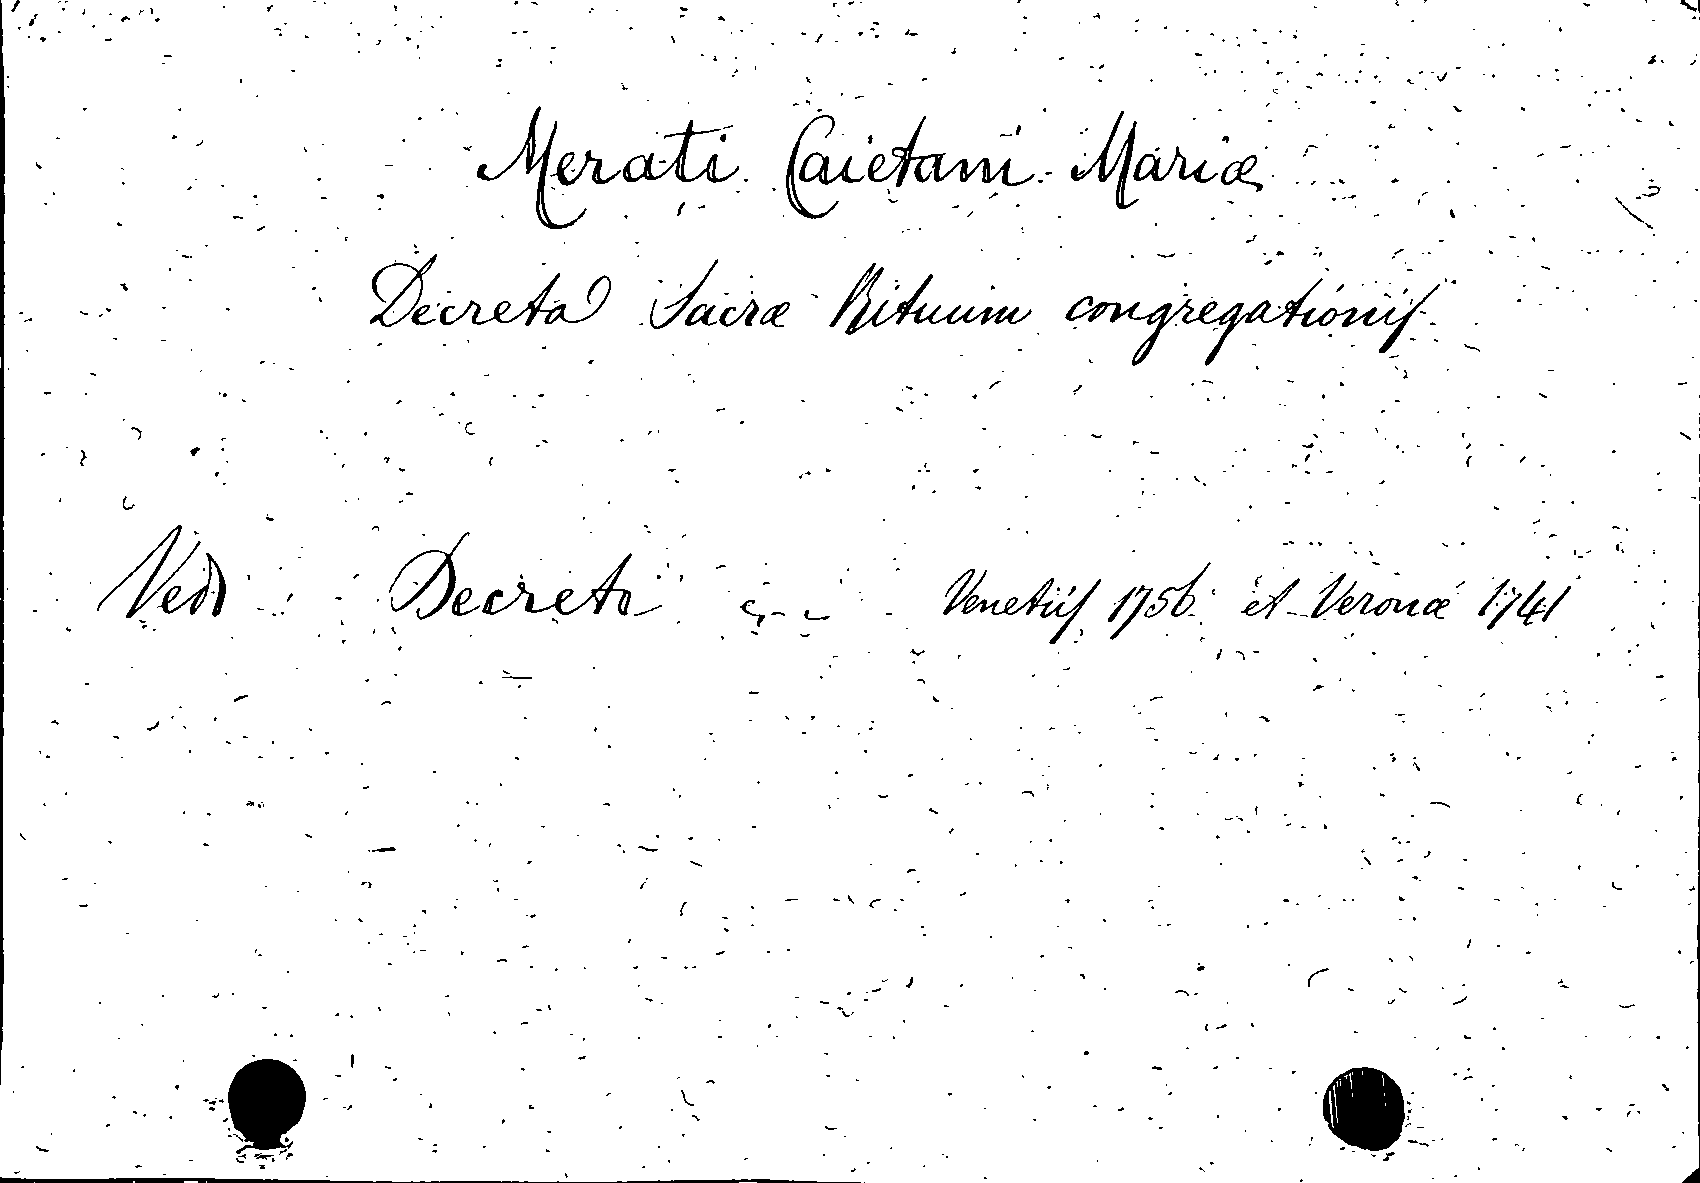 Merati Caietani Mariæ
Decreta Sacræ Rituum congregationis
Vedi Decreta Venetiis 1756 et Veronæ 1741